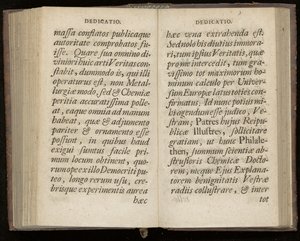 DEDICATIO.
massa conflatos publicaque
autoritate comprobatos fu-
isse. Quare sua omnino di-
viniori huic arti Veritas con-
stabit, dummodo is, qui illi
operaturus est, non Metal-
lurgiæ modo, sed & Chemiæ
peritia accuratissima polle-
at, eaque omnia ad manus
habeat, quæ & adjumento
pariter & ornamento esse
possunt, in quibus haud
exigui suntus facile pri-
mum locum obtinent, quo-
rum ope ex illo Democriti pu-
teo, longo rerum usu, cre-
brisque experimentis aurea
hæc
DEDICATIO.
hæc vena extrahenda est.
Sed nolo his diutius immora-
ri, tum ipsius Veritatis, quæ
pro me intercedit, tum gra-
vissimo tot maximorum ho-
minum calculo per Univer-
sum Europæ latus toties con-
firmatus. Id nunc potius mi-
hi agendum esse judico, Ve-
stram, Patres hujus Reipu-
blicæ Illustres, sollicitare
gratiam, ut hunc Philale-
then, summum scientiæ ab-
strusioris Chemicæ Docto-
rem, neque Ejus Explana-
torem benignitatis Vestræ
radiis collustrare, & inter
tot